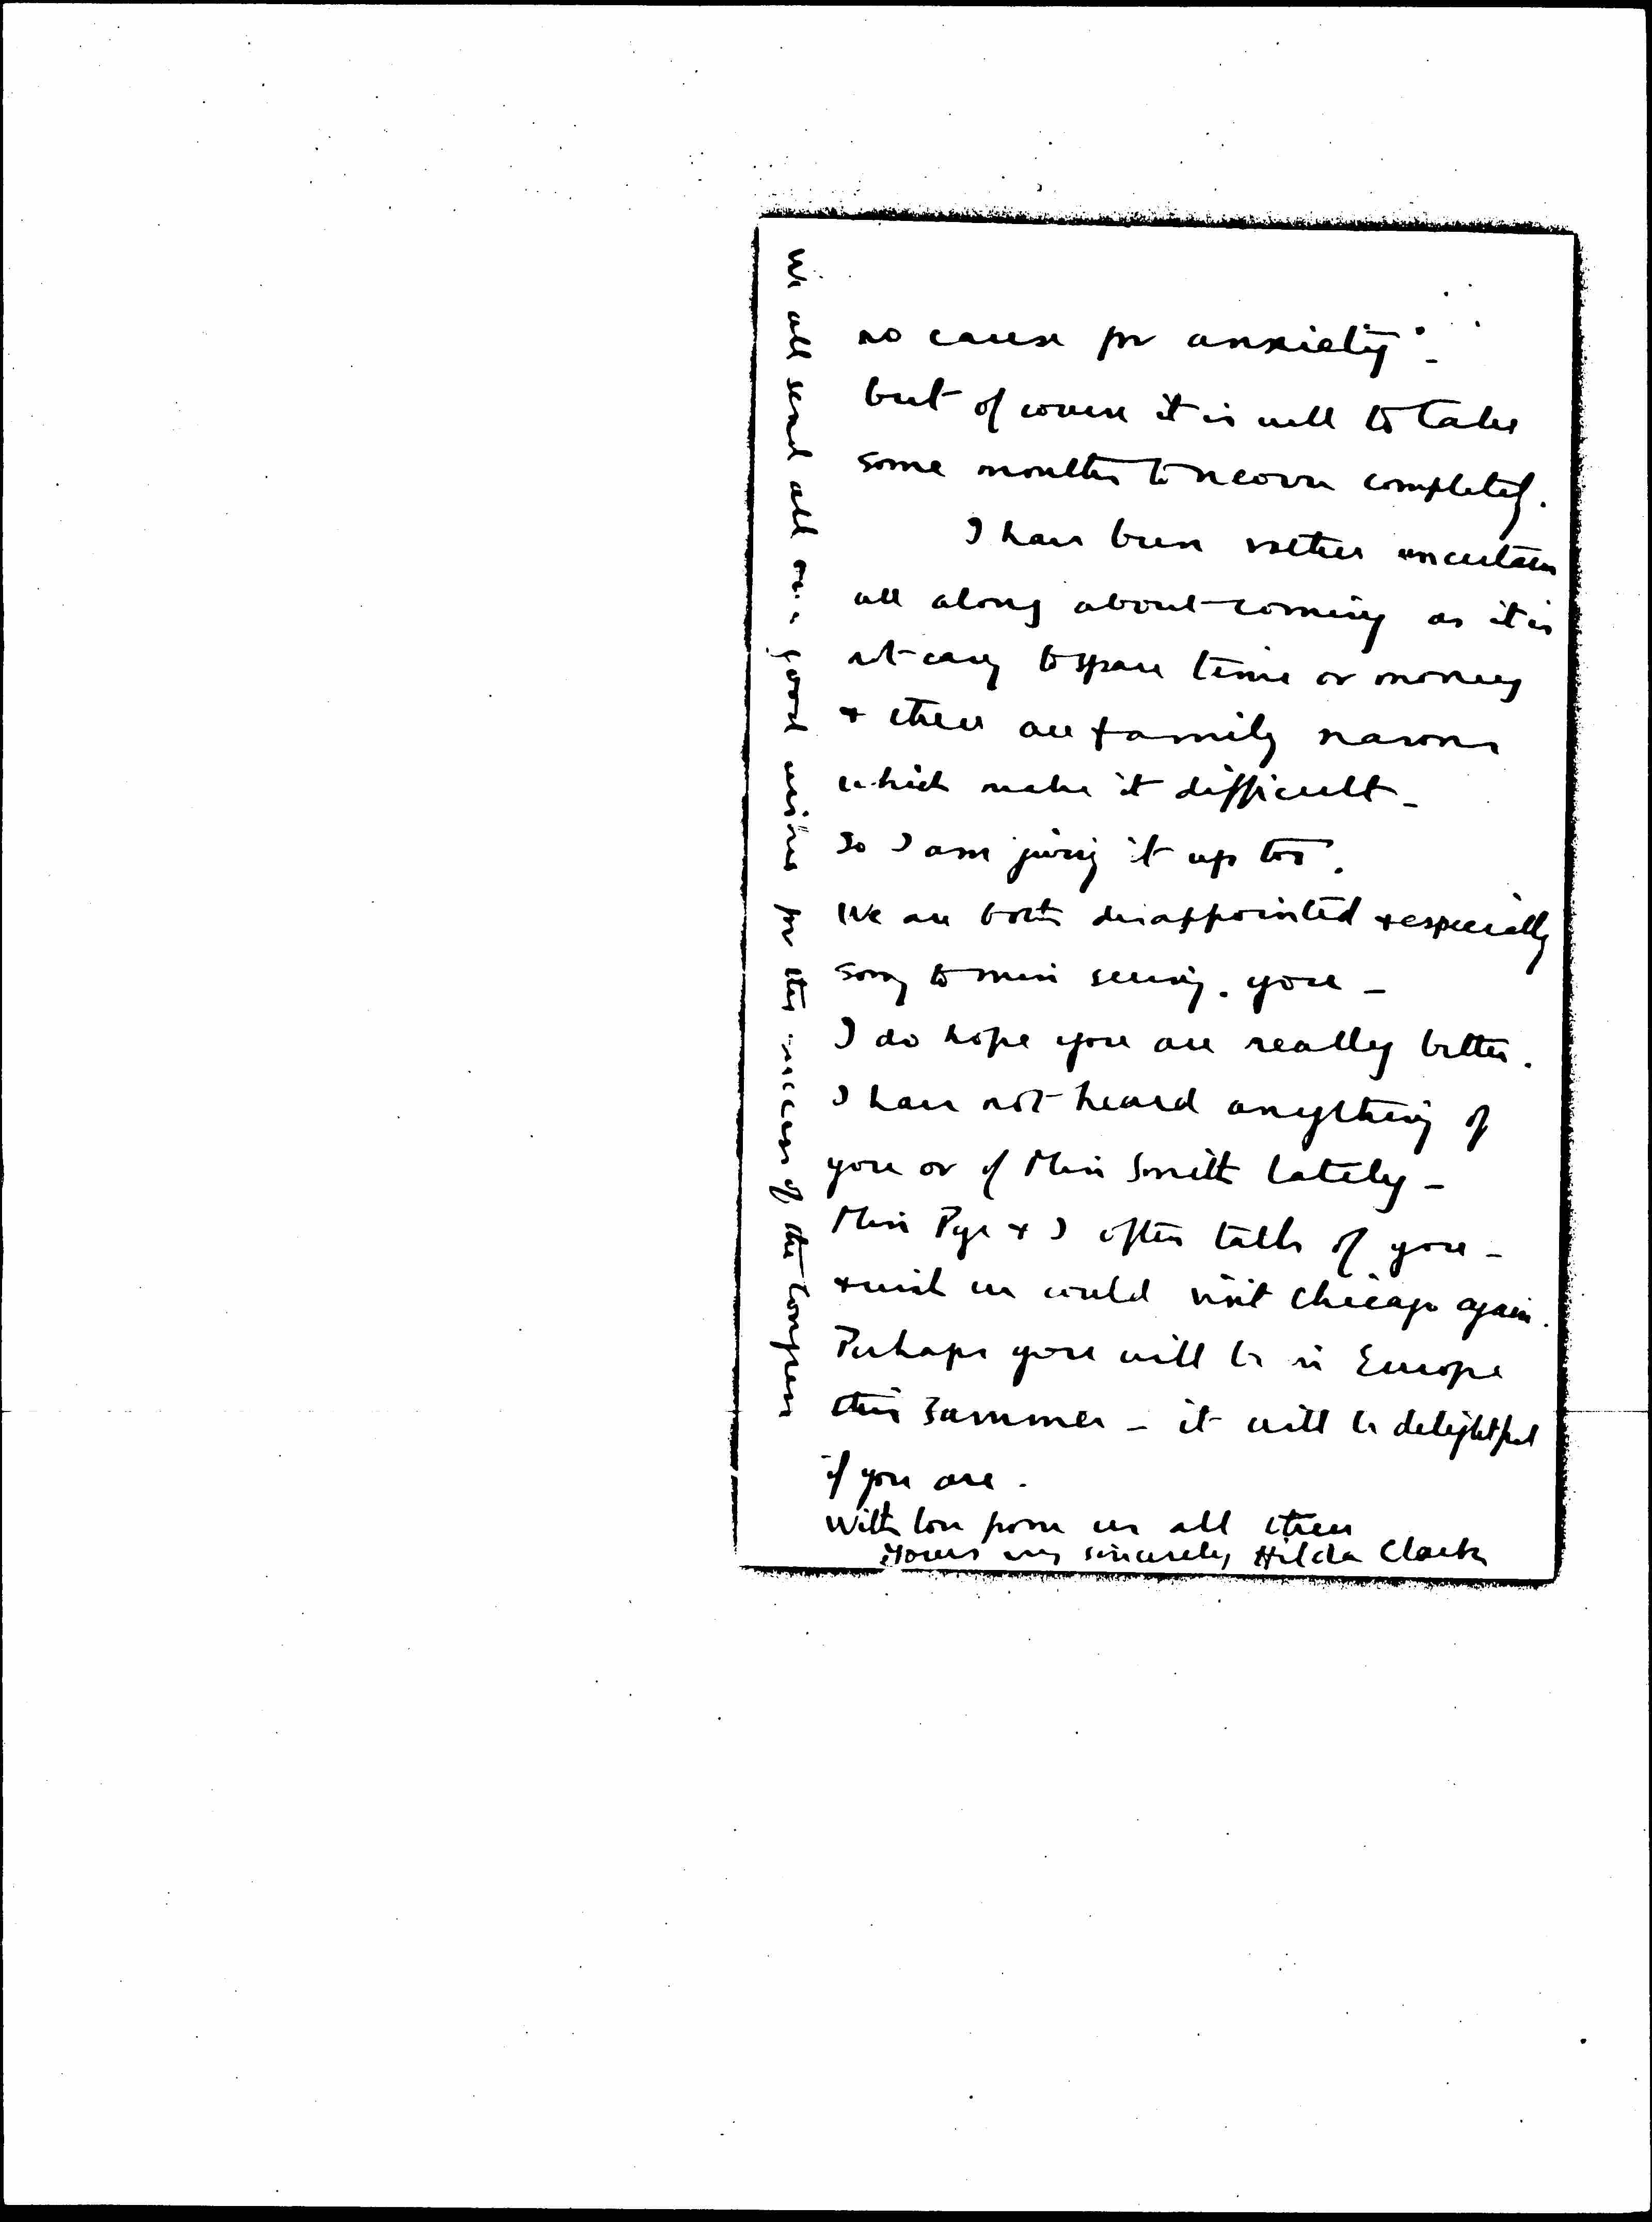 no cause for anxiety -
but of course it is well to take
some months to recover completely.
I have been rather uncertain
all along about coming as it is
not easy to spare time or money
& there are family reasons
which make it difficult -
So I am giving it up too.
We are both disappointed & especially
sorry to miss seeing you -
I do hope you are really better.
I have not heard anything of
you or of Miss Smith lately -
Miss Pye & I often talk of you -
& wish we could visit Chicago again.
Perhaps you will be in Europe
this Summer - it will be delightful
if you are.
With love from us all three
Yours very sincerely Hilda Clark
We all send all our good wishes for the success of the Congress